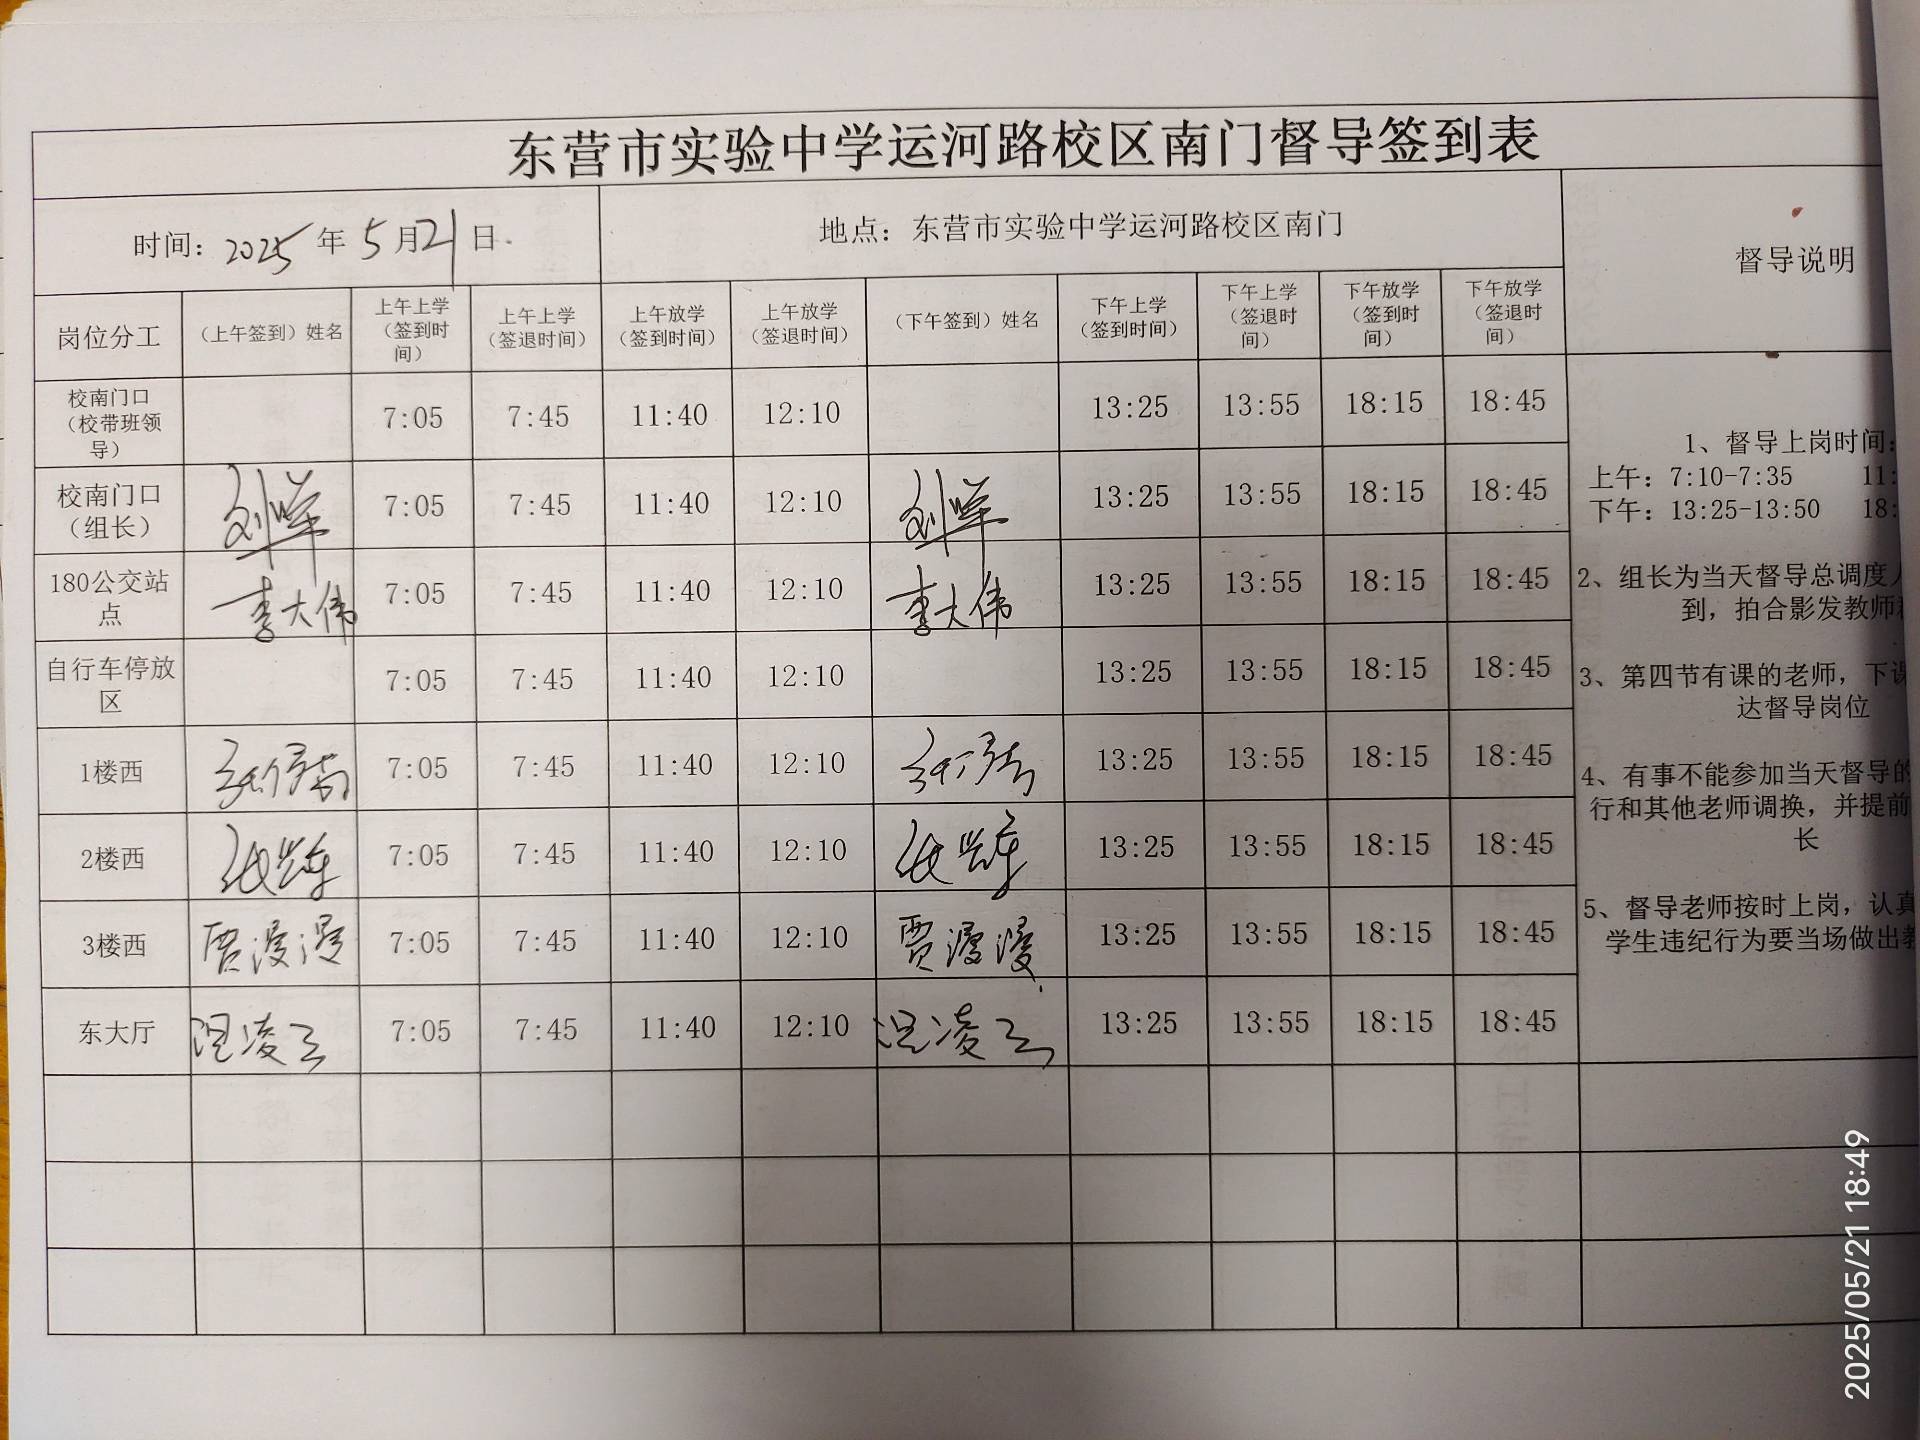 东营市实验中学运河路校区南门督导签到表
时间：2025年5月21日.
地点：东营市实验中学运河路校区南门
督导说明
岗位分工 （上午签到）姓名 上午上学（签到时间） 上午上学（签退时间） 上午放学（签到时间） 上午放学（签退时间） （下午签到）姓名 下午上学（签到时间） 下午上学（签退时间） 下午放学（签到时间） 下午放学（签退时间）
校南门口（校带班领导） 7:05 7:45 11:40 12:10 13:25 13:55 18:15 18:45
校南门口（组长） 7:05 7:45 11:40 12:10 13:25 13:55 18:15 18:45
180公交站点 李大伟 7:05 7:45 11:40 12:10 李大伟 13:25 13:55 18:15 18:45
自行车停放区 7:05 7:45 11:40 12:10 13:25 13:55 18:15 18:45
1楼西 7:05 7:45 11:40 12:10 13:25 13:55 18:15 18:45
2楼西 7:05 7:45 11:40 12:10 13:25 13:55 18:15 18:45
3楼西 贾漫漫 7:05 7:45 11:40 12:10 贾漫漫 13:25 13:55 18:15 18:45
东大厅 7:05 7:45 11:40 12:10 13:25 13:55 18:15 18:45
1、督导上岗时间：
上午：7:10-7:35 11:
下午：13:25-13:50 18:
2、组长为当天督导总调度
到，拍合影发教师
3、第四节有课的老师，下课
达督导岗位
4、有事不能参加当天督导的
行和其他老师调换，并提前
长
5、督导老师按时上岗，认真
学生违纪行为要当场做出
2025/05/21 18:49